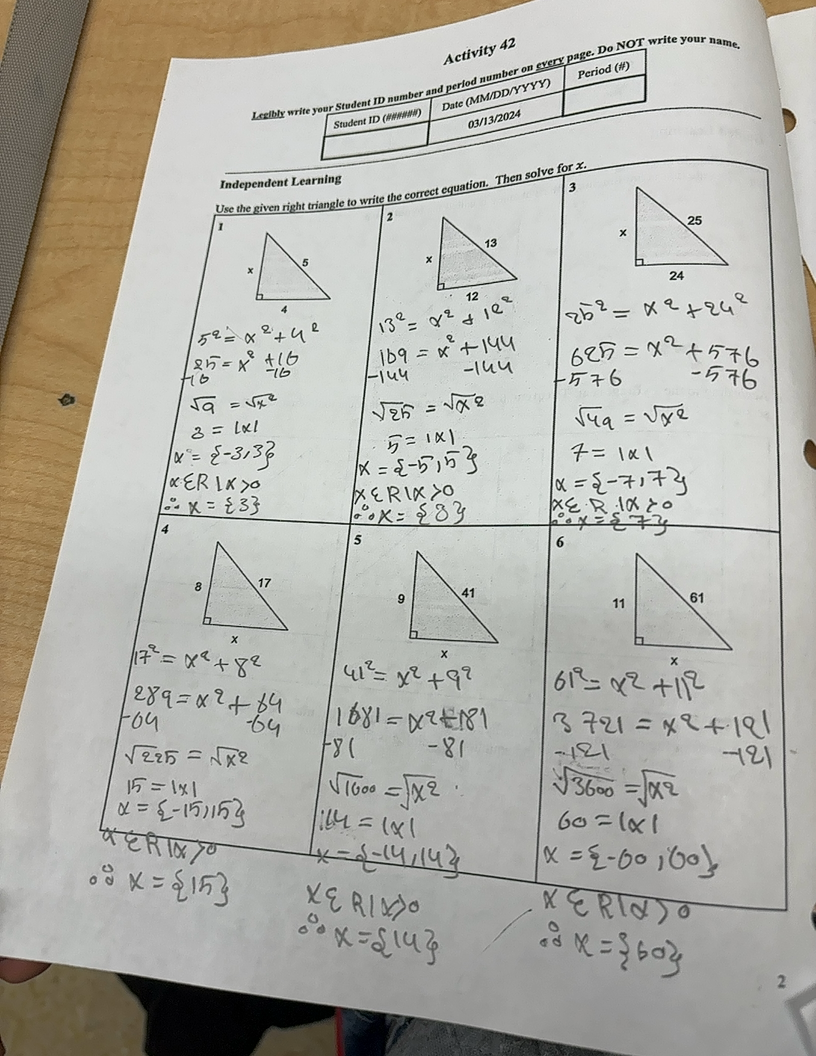 Activity 42
Legibly write your Student ID number and period number on every page. Do NOT write your name.
Student ID (######) Date (MM/DD/YYYY) Period (#)
03/13/2024
Independent Learning
Use the given right triangle to write the correct equation. Then solve for x.
1
x 5
4
5² = x² + 4²
25 = x² + 16
-16 -16
√9 = √x²
3 = |x|
x = {-3,3}
x ε R | x > 0
∴ x = {3}
2
x 13
12
13² = x² + 12²
169 = x² + 144
-144 -144
√25 = √x²
5 = |x|
x = {-5,5}
x ε R | x > 0
∴ x = {8}
3
x 25
24
25² = x² + 24²
625 = x² + 576
-576 -576
√49 = √x²
7 = |x|
x = {-7,7}
x ε R | x > 0
∴ x = {7}
4
8 17
x
17² = x² + 8²
289 = x² + 64
-64 -64
√225 = √x²
15 = |x|
x = {-15,15}
x ε R | x > 0
∴ x = {15}
5
9 41
x
41² = x² + 9²
1681 = x² + 81
-81 -81
√1600 = √x²
14 = |x|
x = {-14,14}
x ε R | x > 0
∴ x = {14}
6
11 61
x
61² = x² + 11²
3721 = x² + 121
-121 -121
√3600 = √x²
60 = |x|
x = {-60,60}
x ε R | x > 0
∴ x = {60}
2